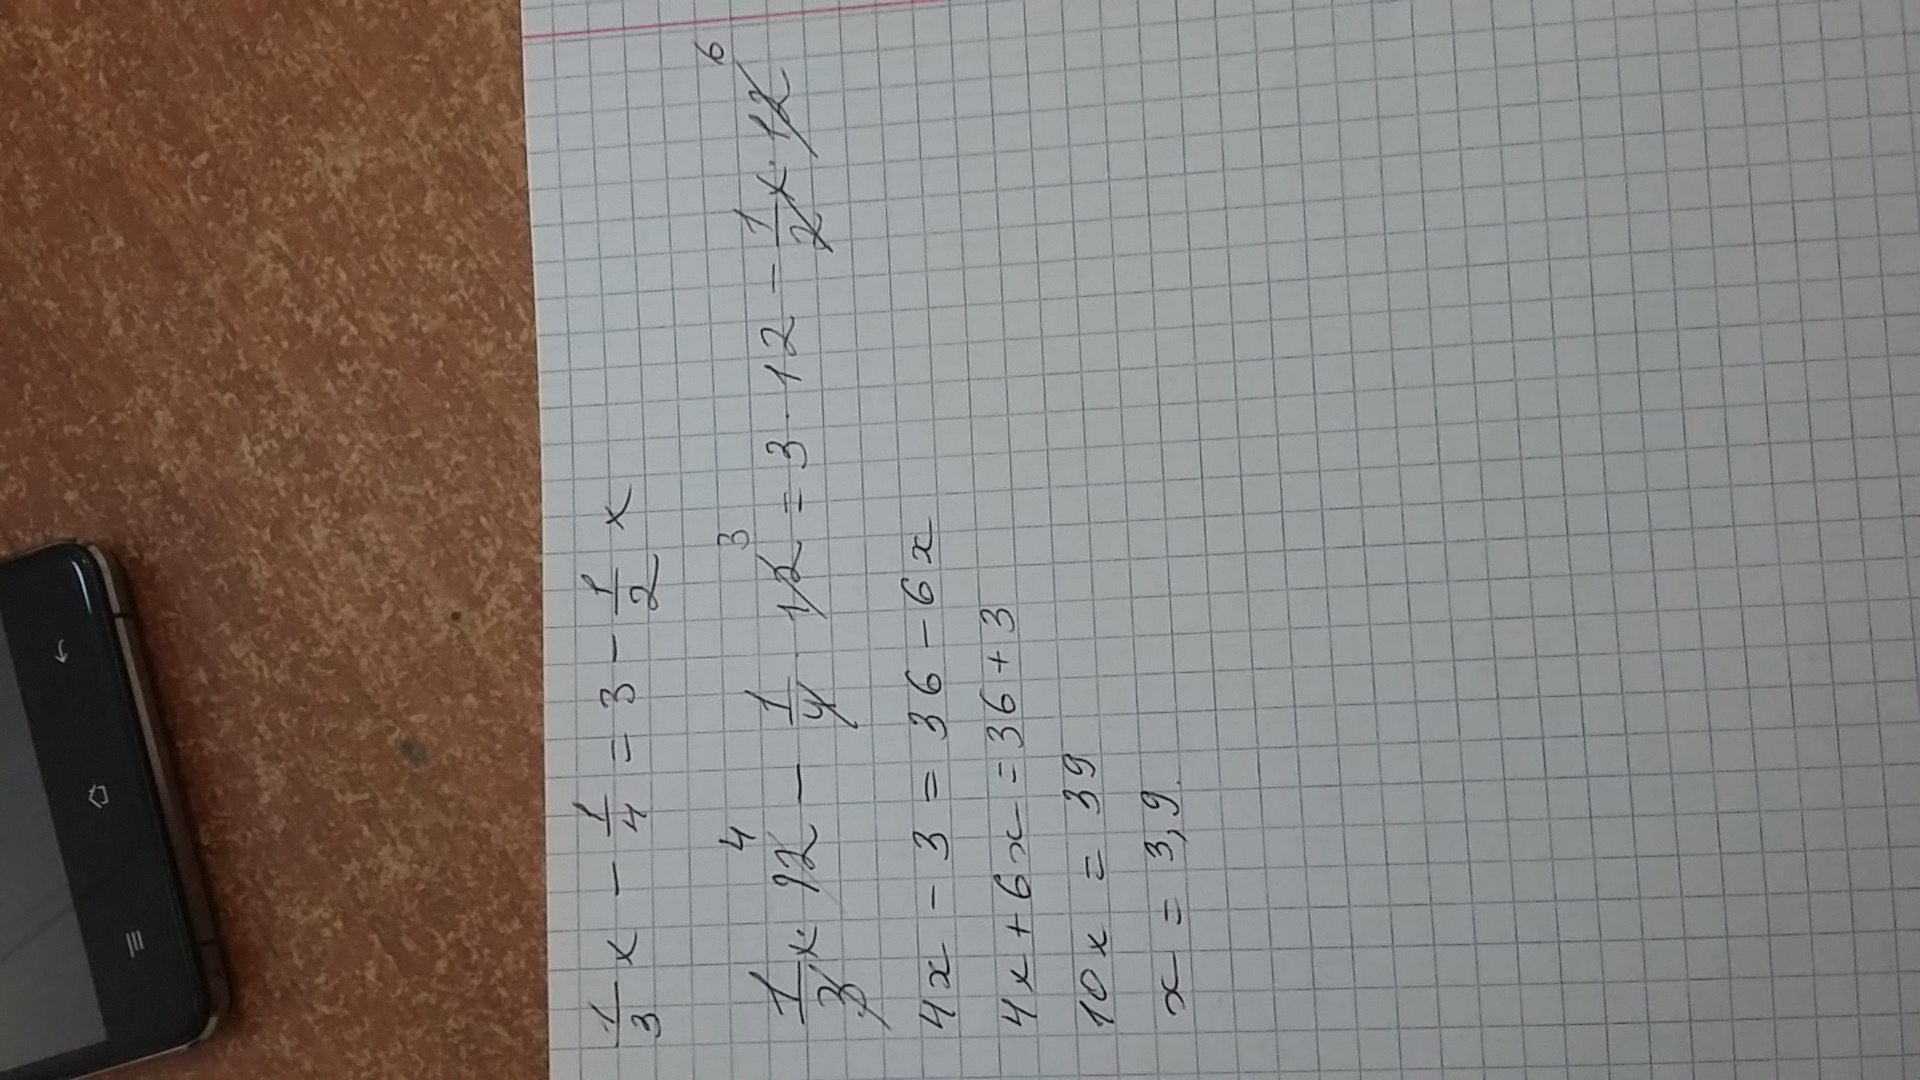 1/3 x - 1/4 = 3 - 1/2 x
1/3 x · 12 4 - 1/4 · 12 3 = 3 · 12 - 1/2 x · 12 6
4x - 3 = 36 - 6x
4x + 6x = 36 + 3
10x = 39
x = 3,9.